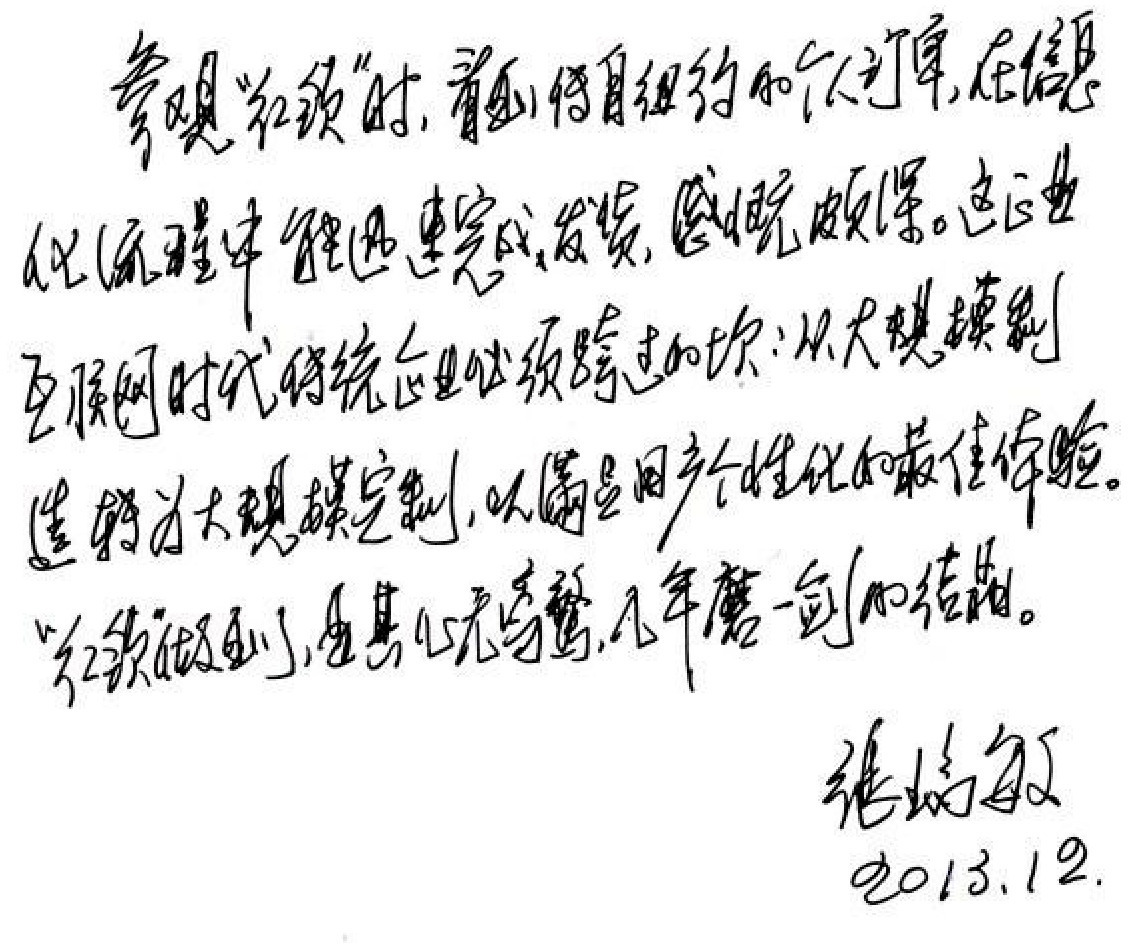 参观“红领”时,看到传自纽约的个人订单,在信息
化流程中能迅速完成、发货,感慨颇深。这正是
互联网时代传统企业必须跨过的坎:从大规模制
造转为大规模定制,以满足用户个性化的最佳体验。
“红领”做到了,是其心无旁骛,几年磨一剑的结晶。
张瑞敏
2013.12.